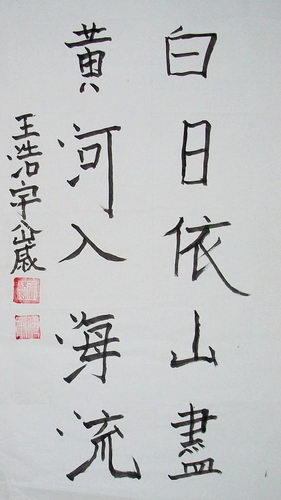 白日依山盡
黃河入海流
王浩宇八歲